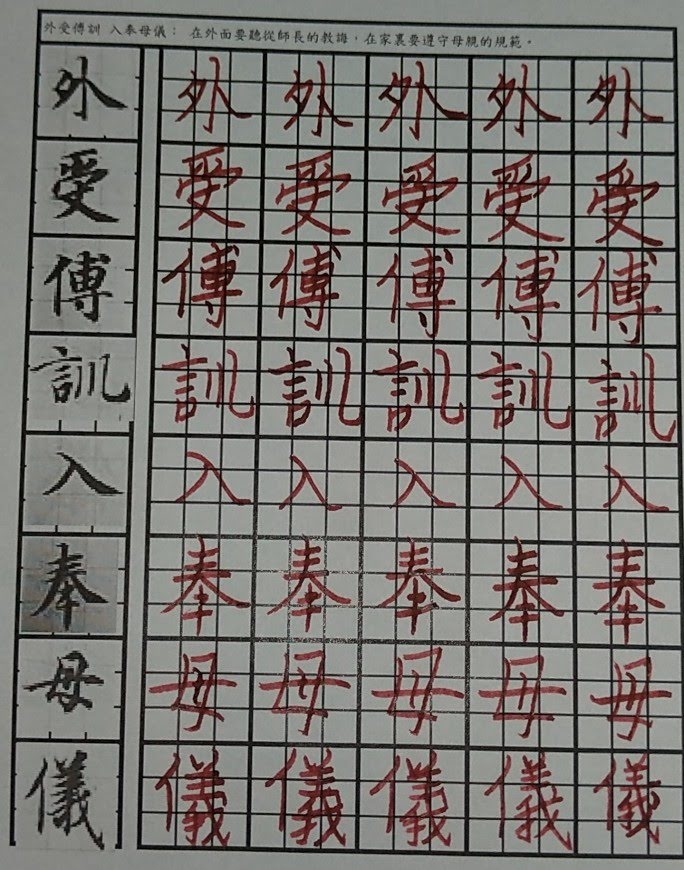 外受傅訓 入奉母儀： 在外面要聽從師長的教誨，在家裏要遵守母親的規範。
外 外 外 外 外 外
受 受 受 受 受 受
傅 傅 傅 傅 傅 傅
訓 訓 訓 訓 訓 訓
入 入 入 入 入 入
奉 奉 奉 奉 奉 奉
母 母 母 母 母 母
儀 儀 儀 儀 儀 儀